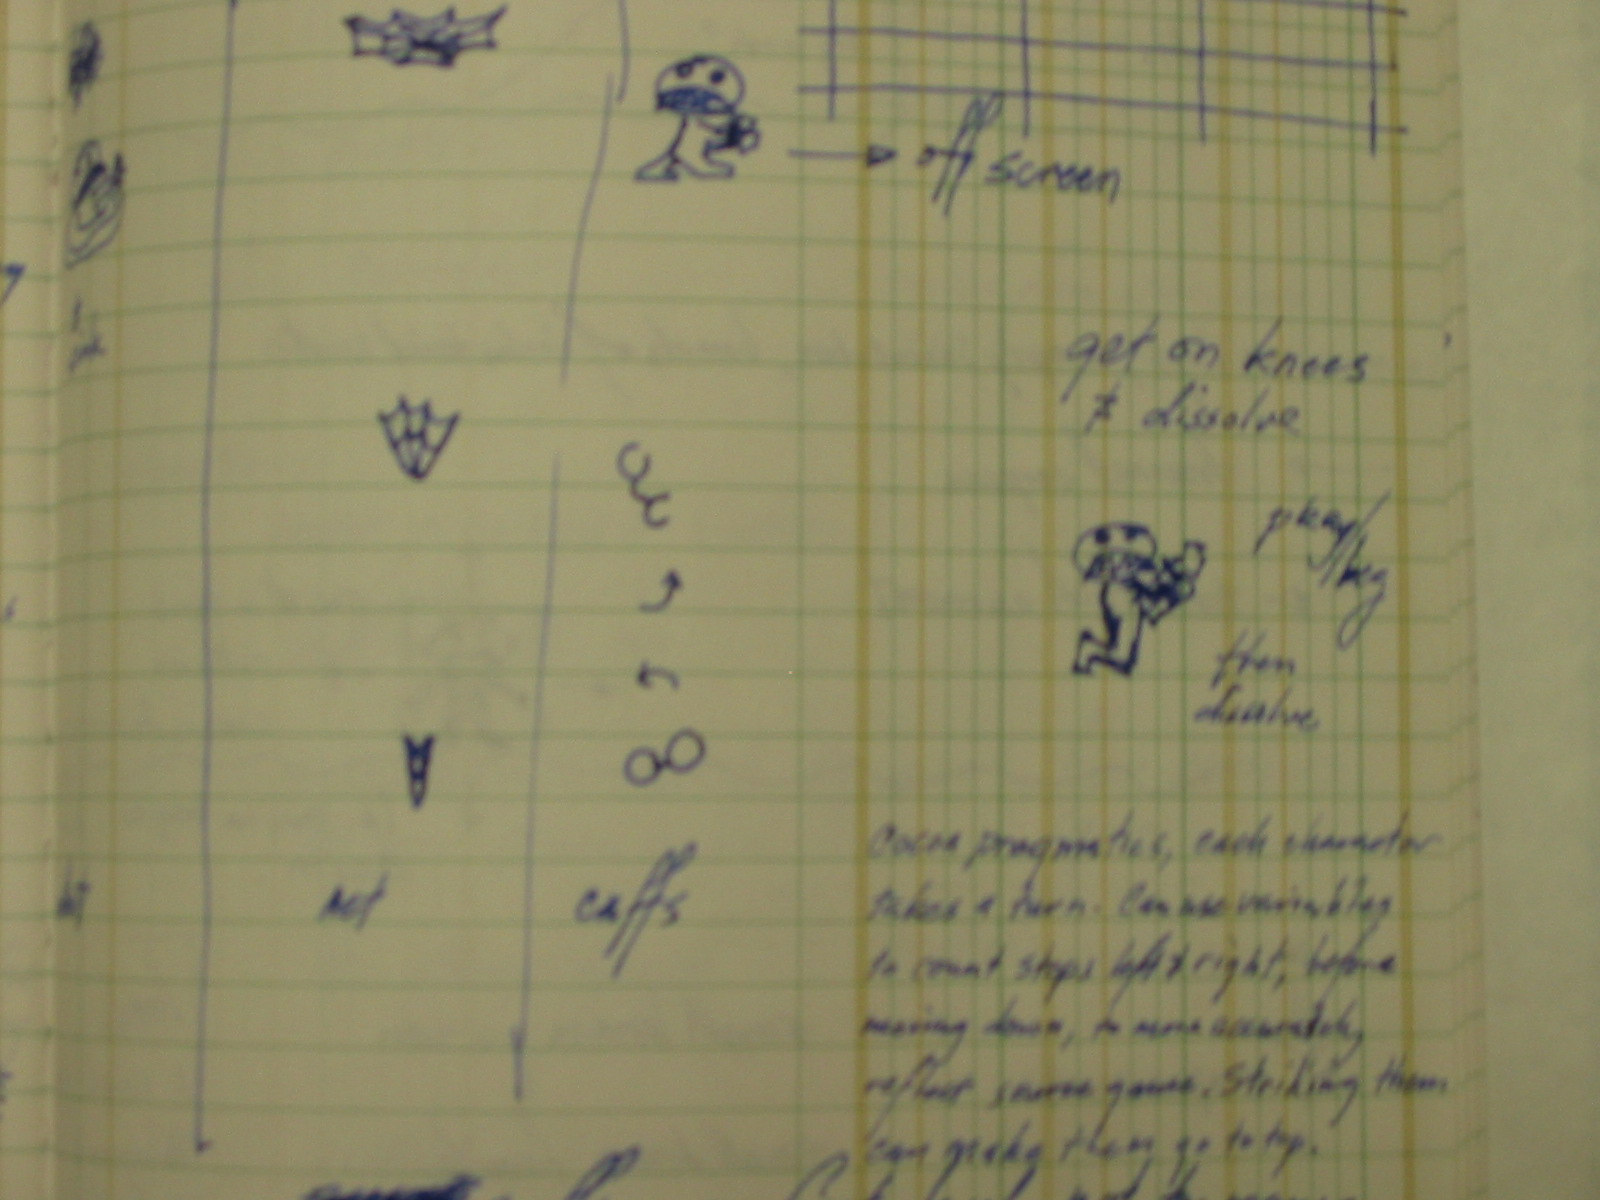 off screen
get on knees
& dissolve
pray/
beg
then
dissolve
net
cuffs
Cocoa pragmatics, each character
takes a turn. Can use variables
to count steps left & right, before
moving down, to more accurately
reflect source game. Striking them
can make them go to top.